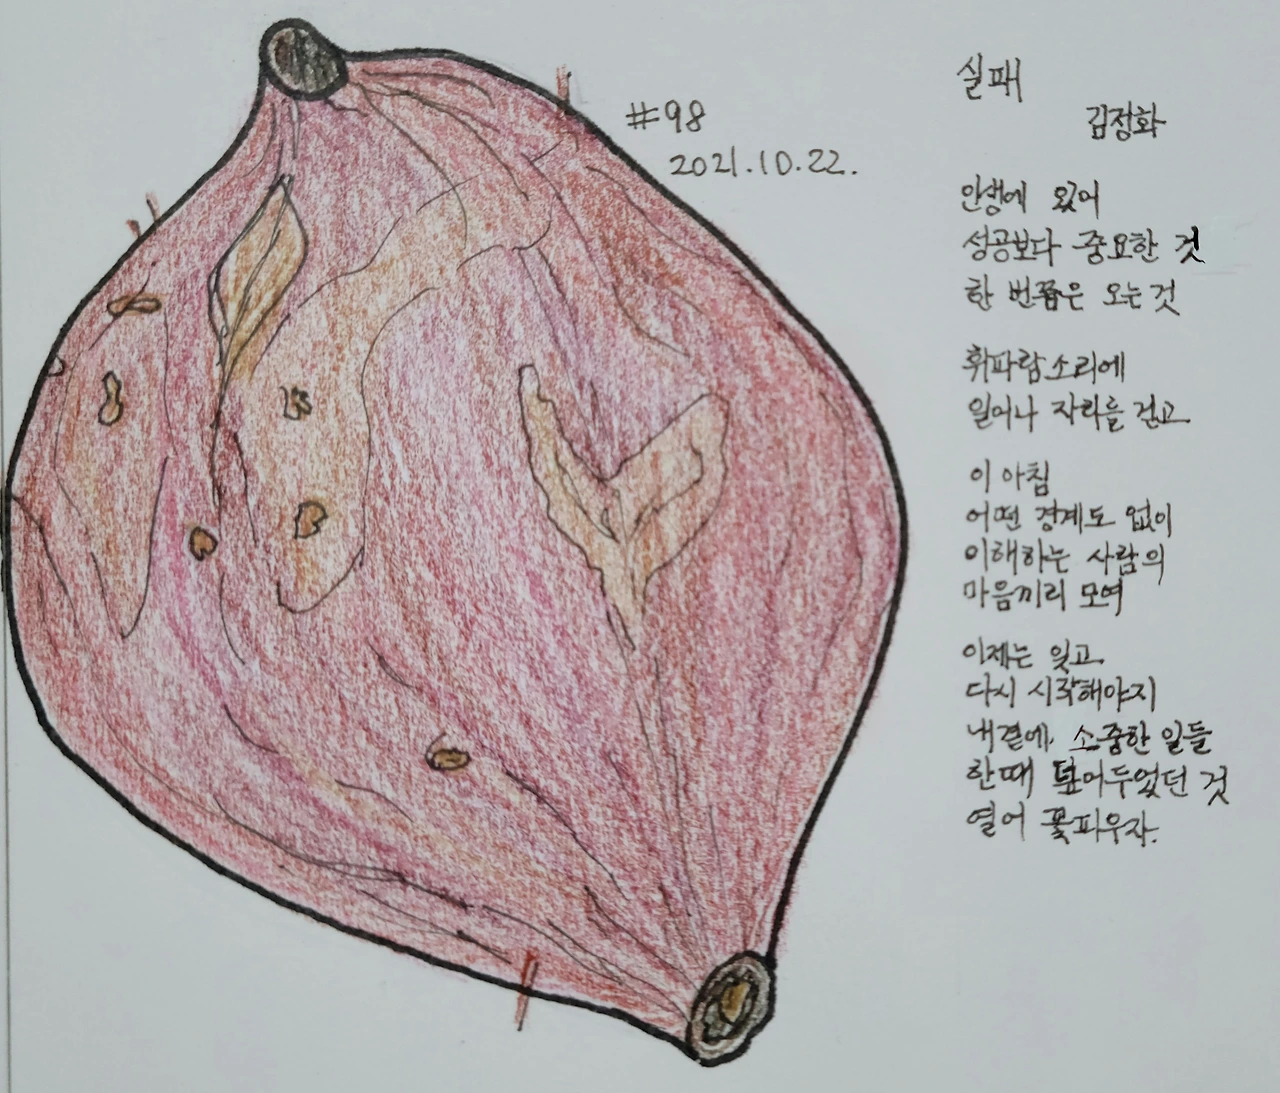 #98
2021.10.22.
실패
김정화
인생에 있어
성공보다 중요한 것
한 번쯤은 오는 것
휘파람 소리에
일어나 자리를 걷고
이 아침
어떤 경계도 없이
이해하는 사람의
마음끼리 모여
이제는 잊고
다시 시작해야지
내곁에 소중한 일들
한때 덮어두었던 것
열어 꽃피우자.